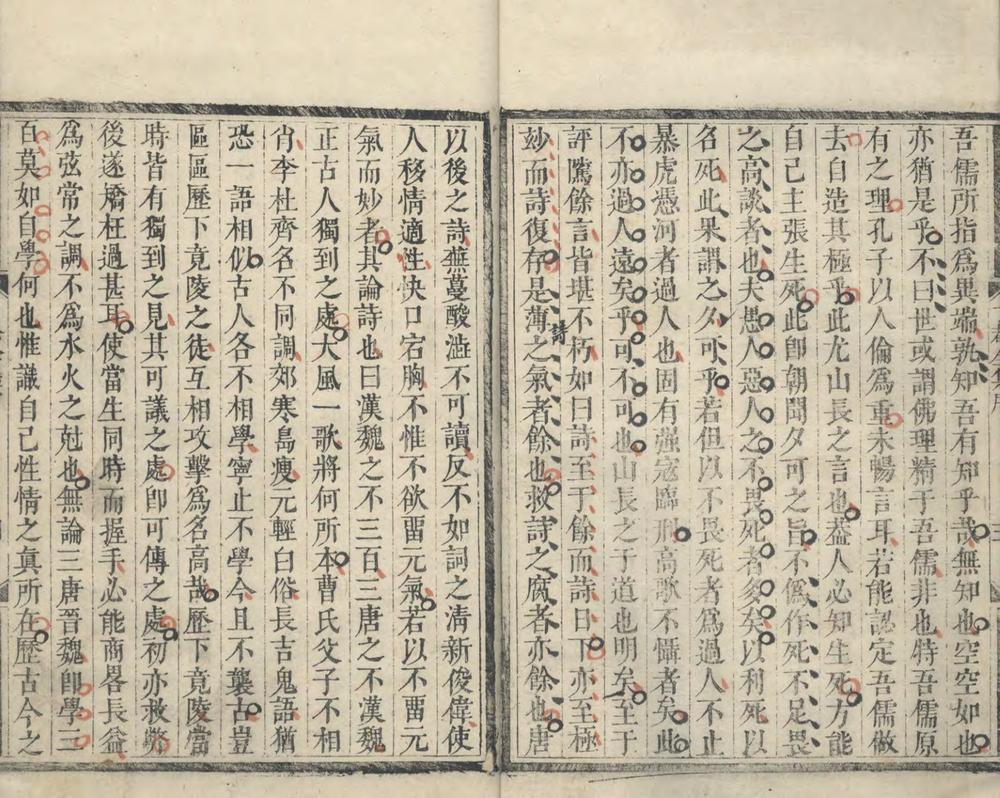 吾儒所指爲異端孰知吾有知乎哉無知也空空如也
亦猶是乎不曰世或謂佛理精于吾儒非也特吾儒原
有之理孔子以人倫爲重未暢言耳若能認定吾儒做
去自造其極乎此尤山長之言也葢人必知生死方能
自己主張生死此卽朝聞夕可之旨不爲作死不足畏
之高談者也夫愚人惡人之不畏死者多矣以利死以
名死此果謂之夕可乎若但以不畏死者爲過人不止
暴虎憑河者過人也固有强寇臨刑高歌不懾者矣此
不亦過人遠矣乎可不可也山長之于道也明矣至于
評騭餘言皆堪不朽如曰詩至于餘而詩日下亦至極
玅而詩復存是薄詩之氣者餘也救詩之腐者亦餘也唐
以後之詩蕪蔓酸澁不可讀反不如詞之淸新俊偉使
人移情適性快口宕胸不惟不欲畱元氣若以不畱元
氣而妙者其論詩也曰漢魏之不三百三唐之不漢魏
正古人獨到之處大風一歌將何所本曹氏父子不相
肖李杜齊名不同調郊寒島瘦元輕白俗長吉鬼語猶
恐一語相似古人各不相學寧止不學今且不襲古豈
區區歷下竟陵之徒互相攻擊爲名高哉歷下竟陵當
時皆有獨到之見其可議之處卽可傳之處初亦救獘
後遂矯枉過甚耳使當生同時而握手必能商畧長益
爲弦常之調不爲水火之尅也無論三唐晉魏卽學三
百莫如自學何也惟識自己性情之眞所在歷古今之